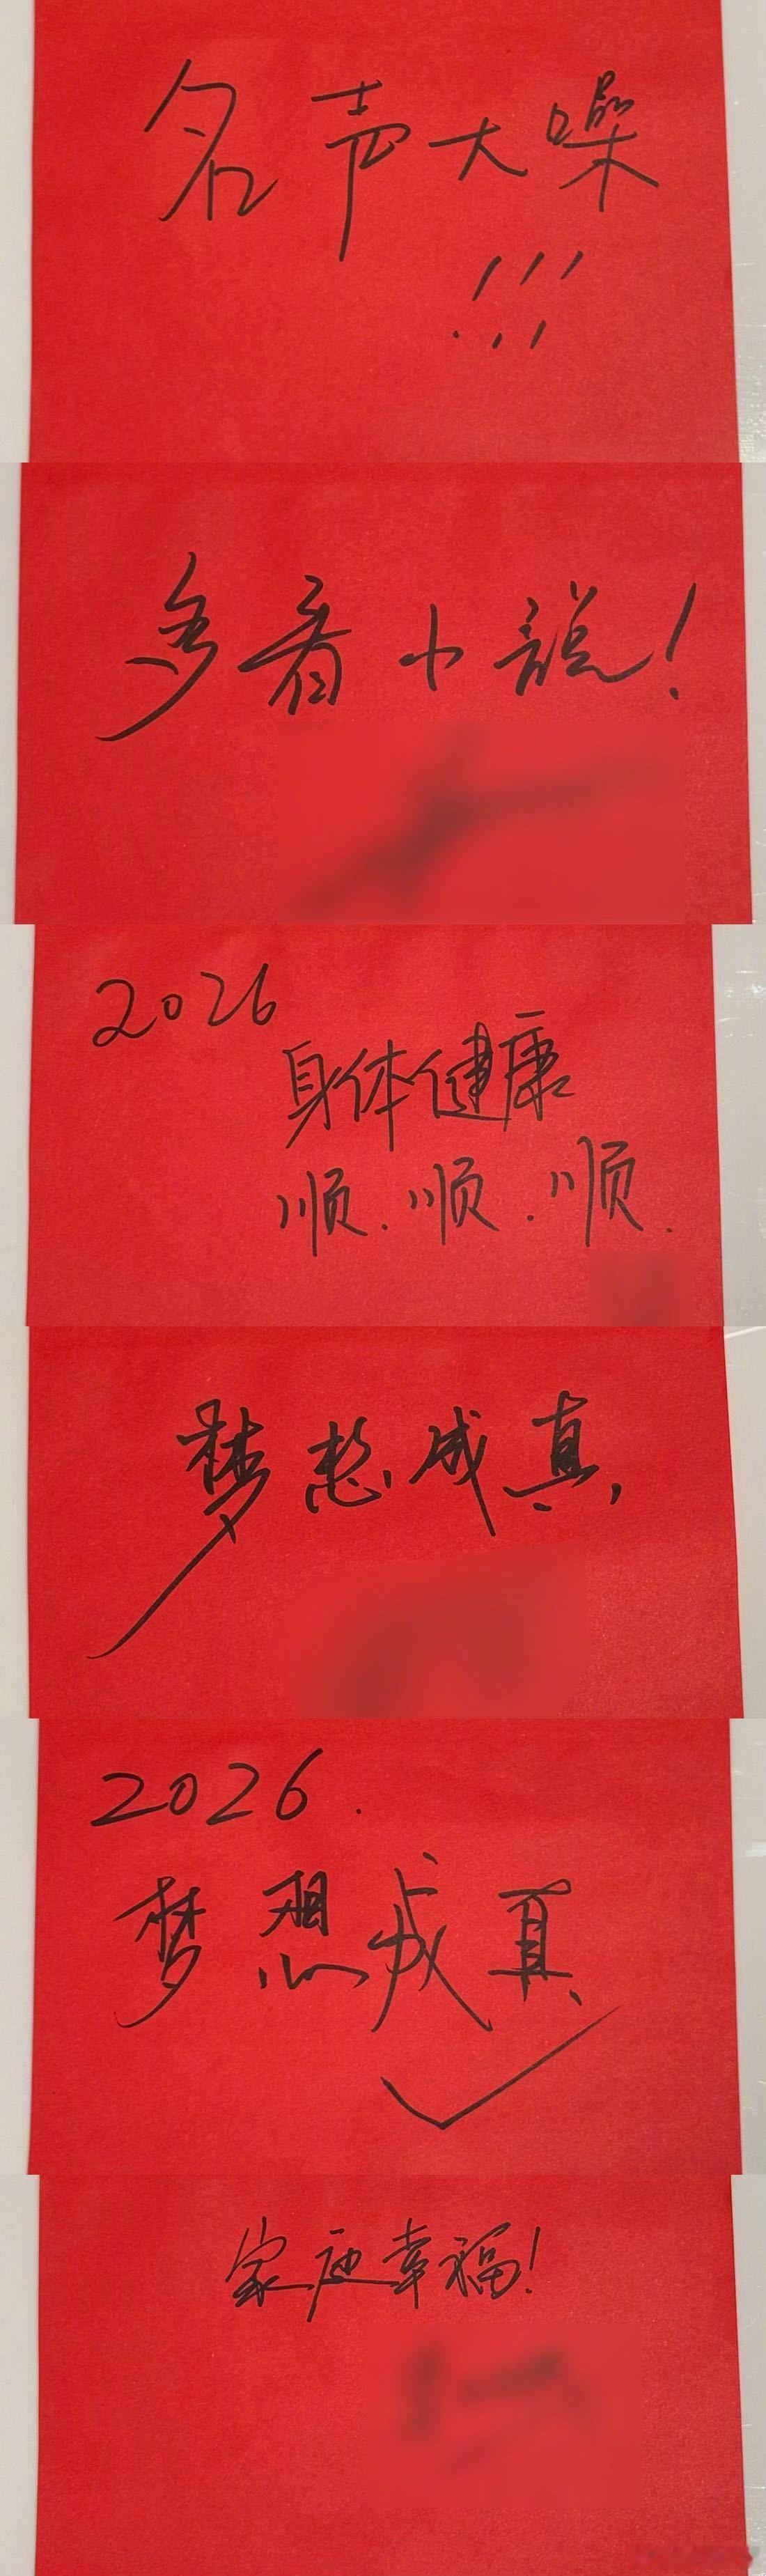 名声大噪
!!!
多看小説!
2026
身体健康
顺.顺.顺.
梦想成真
2026.
梦想成真
家庭幸福!